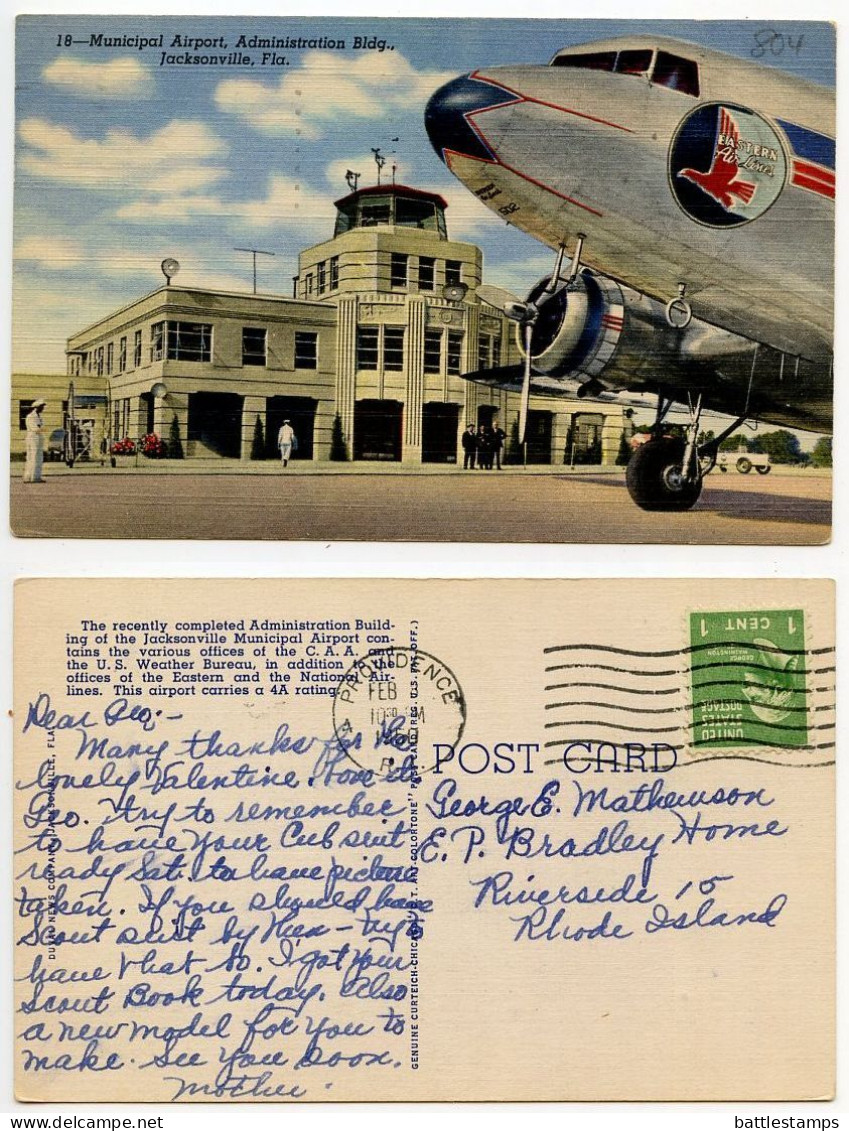 18—Municipal Airport, Administration Bldg.,
Jacksonville, Fla.
804
EASTERN
Air Lines
The recently completed Administration Build-
ing of the Jacksonville Municipal Airport con-
tains the various offices of the C. A. A. and
the U. S. Weather Bureau, in addition to the
offices of the Eastern and the National Air-
lines. This airport carries a 4A rating.
PROVIDENCE
FEB
10 30 AM
R.I.
1 CENT 1
GEORGE
WASHINGTON
UNITED
STATES
POSTAGE
Dear Geo, -
Many thanks for the
lovely Valentine. Love it
Geo. Try to remember
to have your Cub suit
ready Sat. to have picture
taken. If you should have
Scout suit by then - try &
have that so. I got your
Scout Book today. Also
a new model for you to
make. See you soon.
Mother.
POST CARD
George E. Mathewson
E. P. Bradley Home
Riverside 15
Rhode Island
GENUINE CURTEICH-CHICAGO "C.T. ART-COLORTONE" POST CARD (REG. U.S. PAT. OFF.)
NEWS COMPANY, JACKSONVILLE, FLA.
battlestamps